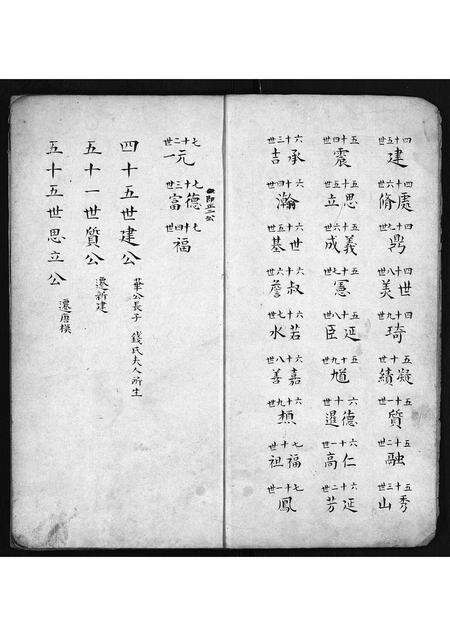 四十五世
建
四十六世
處脩
四十七世
四十八世
世美
四十九世
琦
五十世
凝績
五十一世
質
五十二世
融
五十三世
秀山
五十四世
震
五十五世
思立
五十六世
義成
五十七世
憲
五十八世
延臣
五十九世
馗
六十世
德暹
六十一世
仁高
六十二世
延芳
六十三世
承吉
六十四世
瀚
六十五世
世基
六十六世
叔詹
六十七世
若水
六十八世
嘉善
六十九世
七十世
福祖
七十一世
鳳
七十二世
元一
七十三世
德富
七十四世
福
四十五世建公
華公長子 錢氏夫人所生
五十一世質公
遷新建
五十五世思立公
遷唐模